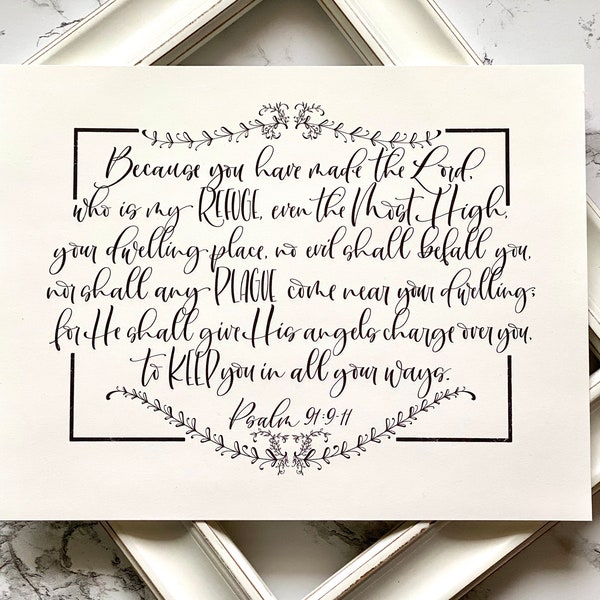 Because you have made the Lord,
who is my REFUGE, even the Most High,
your dwelling place, no evil shall befall you,
nor shall any PLAGUE come near your dwelling;
for He shall give His angels charge over you,
to KEEP you in all your ways.
Psalm 91:9-11